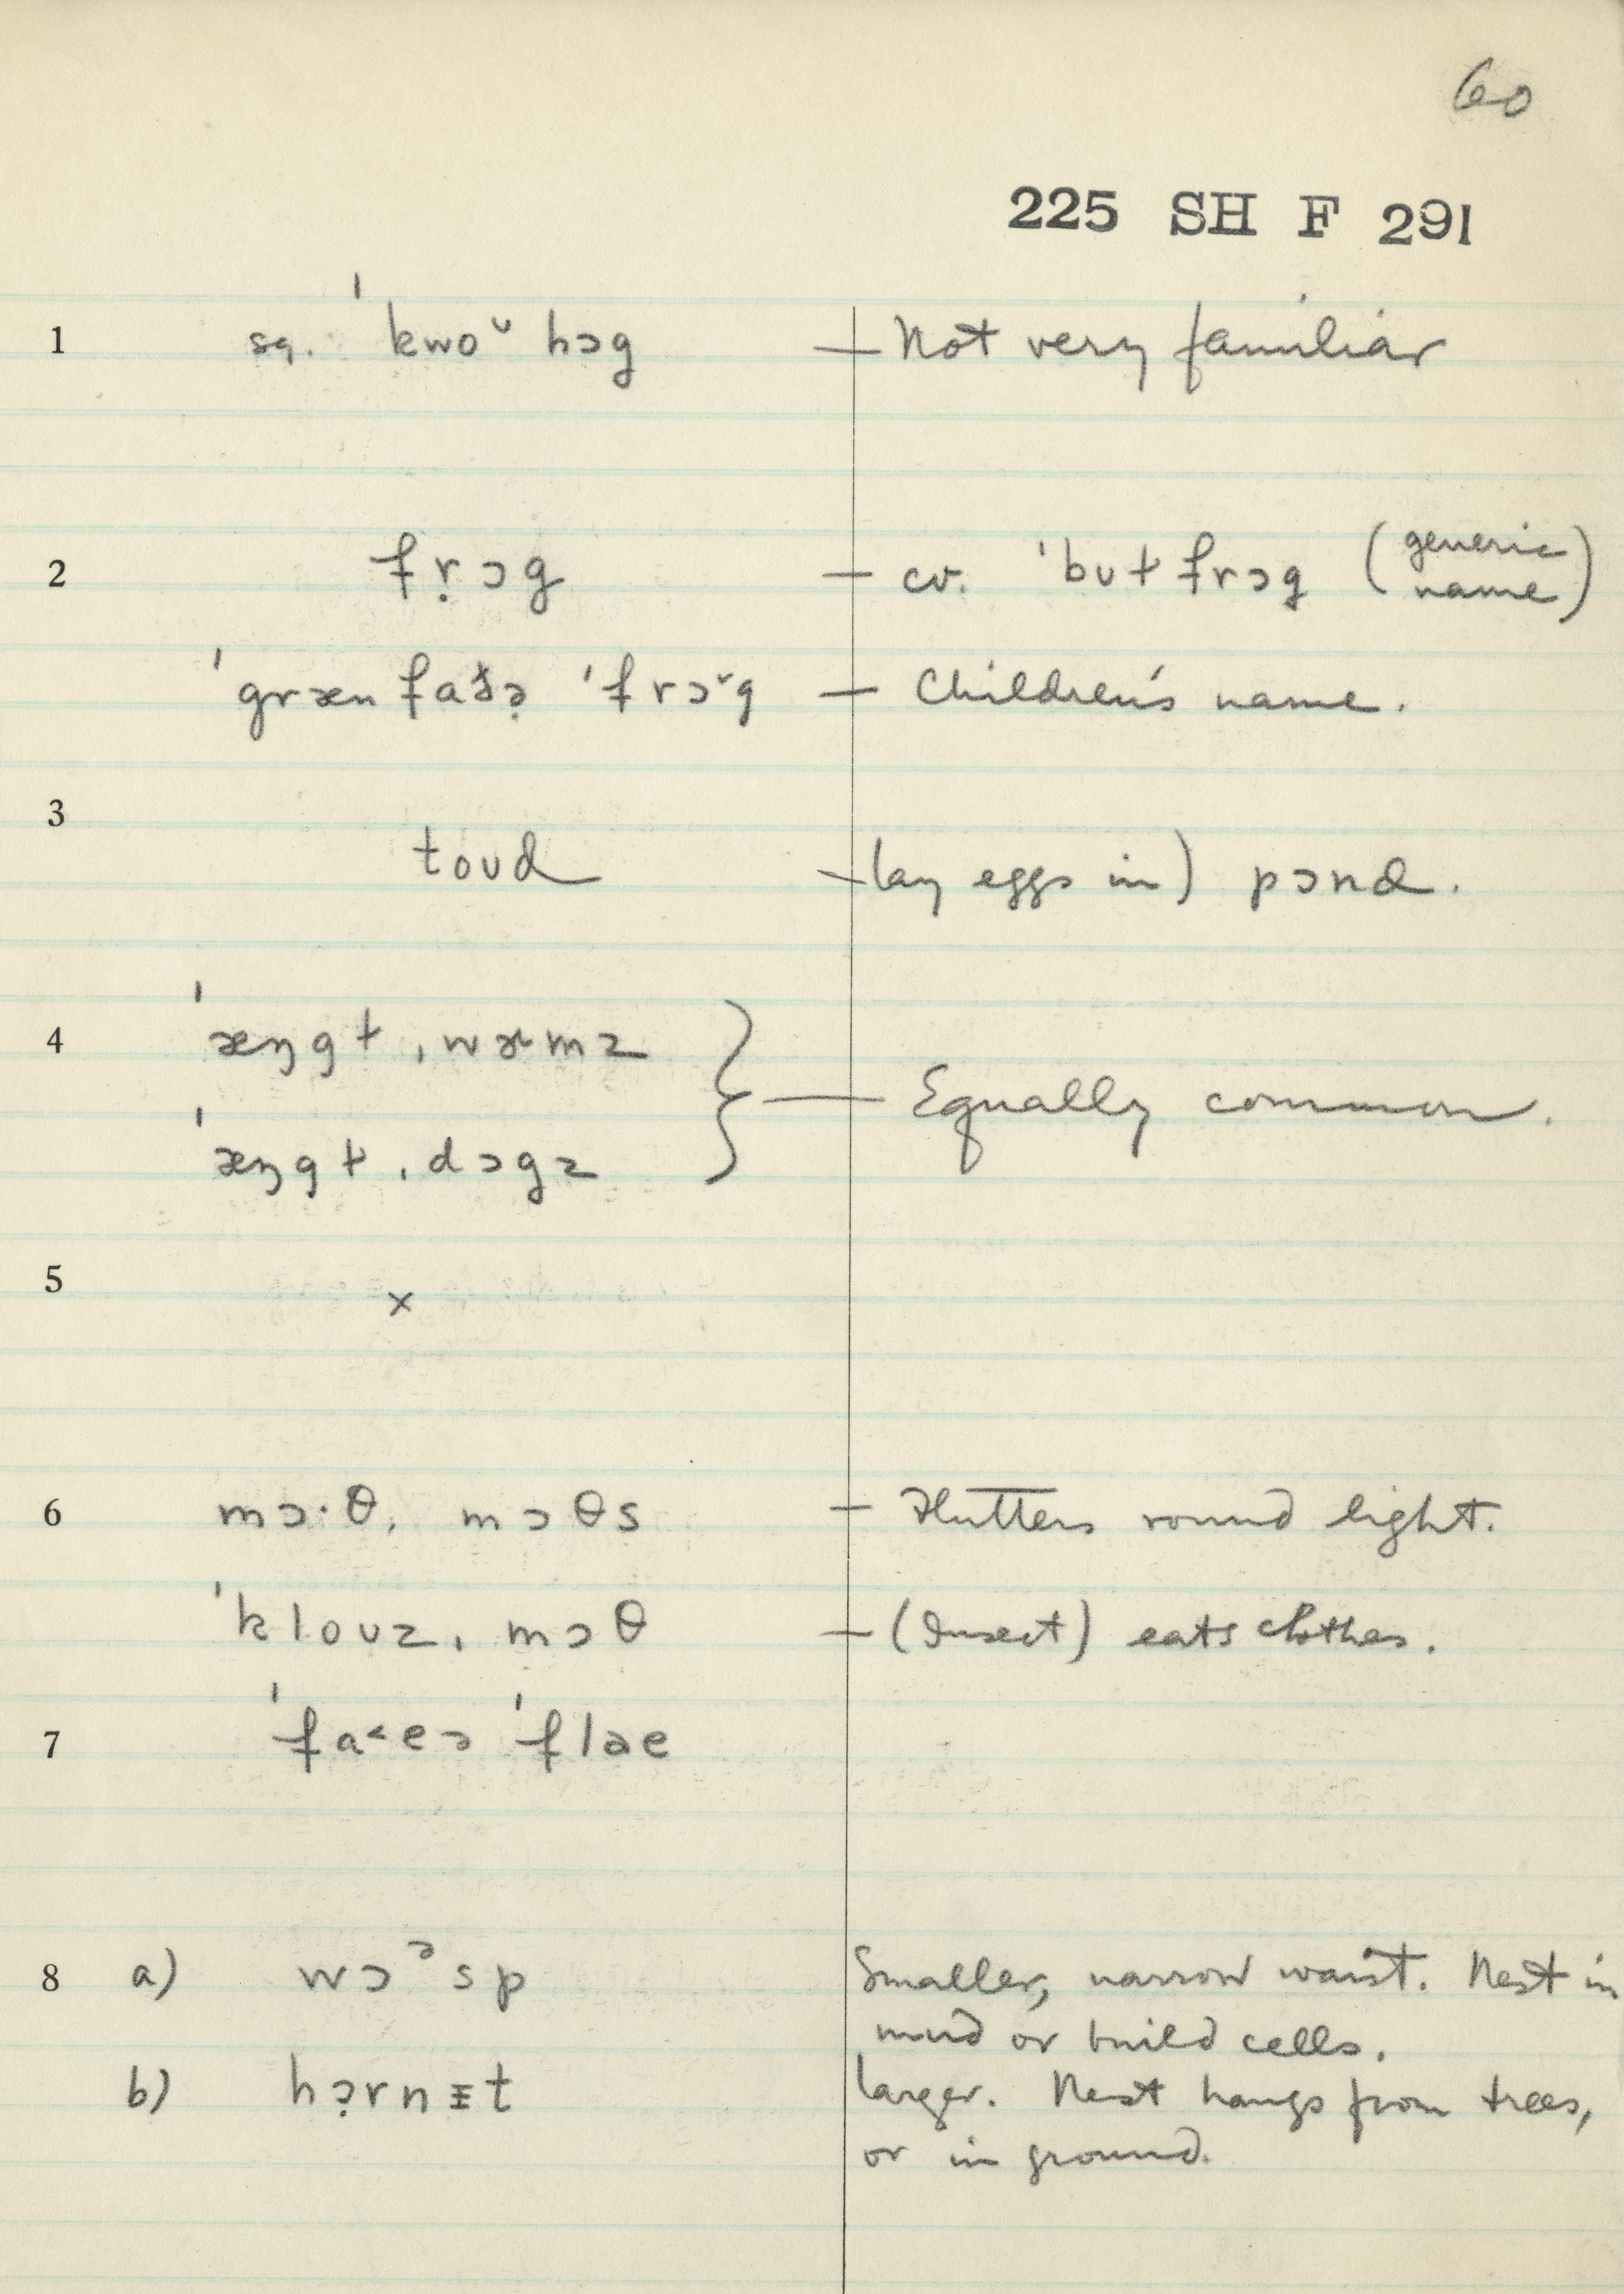 60
225 SH F 291
1 sq. ˈkwoᵛ hɔg — Not very familiar
2 fṛɔg — cv. ˈbʊɫfrɔg (generic name)
ˈgræn fað̣ə̣ ˈfrɔ˅g — Children's name.
3 toʊd — lay eggs in) pɔnd.
4 ˈæŋgɫ ˌwɚmz
ˈæŋgɫ ˌdɔgz } — Equally common.
5 ×
6 mɔ·θ, mɔθs — Flutters round light.
ˈkloʊz ˌmɔθ — (Insect) eats clothes.
7 ˈfa˂eə ˈfləe
8 a) wɔᵊsp Smaller, narrow waist. Nest in
mud or build cells.
b) hɔ̣rnɪ̵t Larger. Nest hangs from trees,
or in ground.